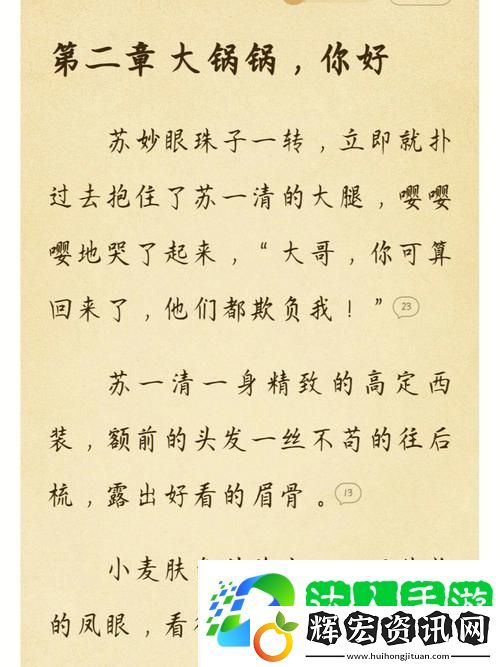 第二章 大锅锅，你好
苏妙眼珠子一转，立即就扑
过去抱住了苏一清的大腿，嘤嘤
嘤地哭了起来，“大哥，你可算
回来了，他们都欺负我！”
23
苏一清一身精致的高定西
装，额前的头发一丝不苟的往后
梳，露出好看的眉骨。
13
小麦肤
的凤眼，看
达人手游
辉宏资讯网
www.huihongjituan.com